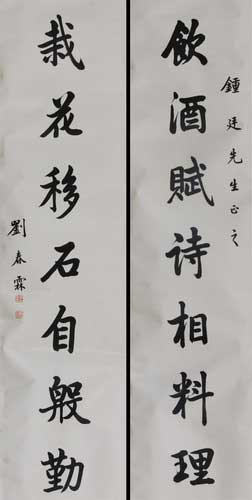 鍾廷先生正之
飲酒賦詩相料理
栽花移石自殷勤
劉春霖